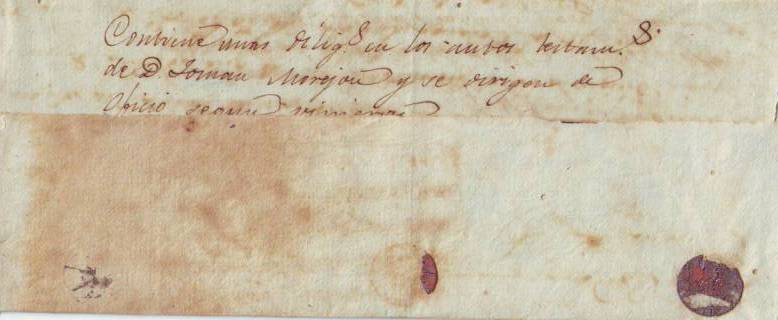 Contiene unas dilig.s en los autos testam.s
de D. Toman Morejon y se dirigen de
Oficio segun vinieron